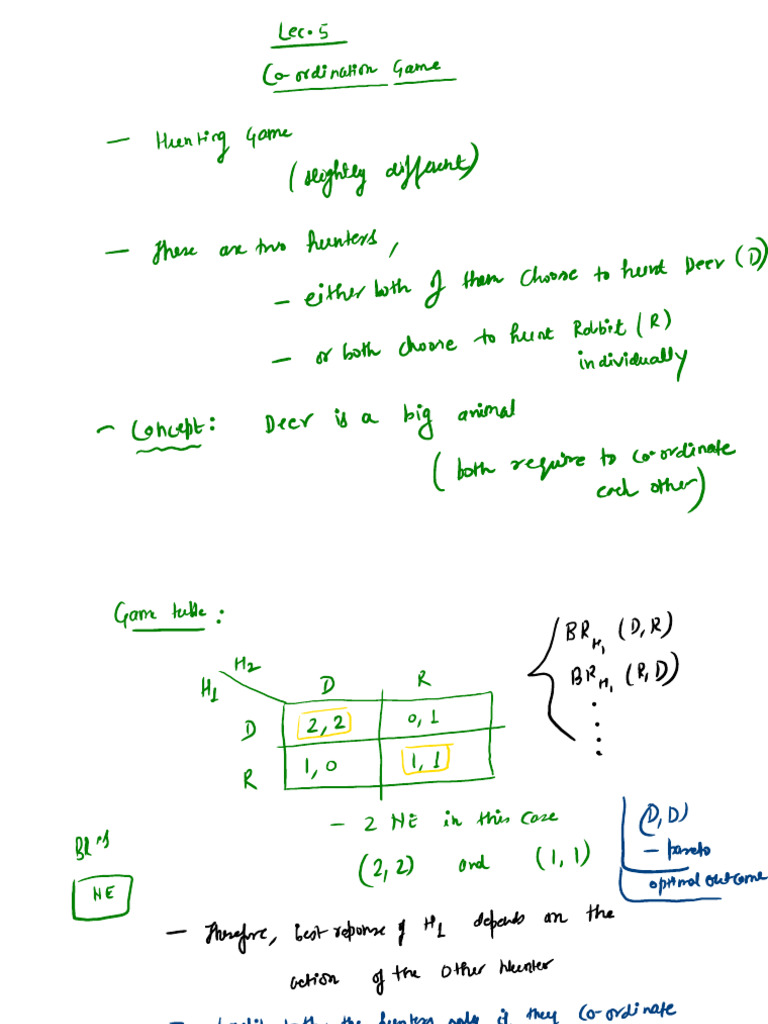 Lec. 5
Co-ordination Game
— Hunting Game
(slightly different)
— There are two hunters,
- either both of them choose to hunt Deer (D)
- or both choose to hunt Rabbit (R)
individually
- Concept: Deer is a big animal
(both require to co-ordinate
each other)
Game table:
BR H1 (D,R)
BR H1 (R,D)
H2
H1
D R
D 2,2 0,1
R 1,0 1,1
- 2 NE in this case
(2,2) and (1,1)
(D,D)
- pareto
optimal outcome
BR's
NE
— Therefore, best reponse of H1 depends on the
action of the other Hunter
the hunters only if they co-ordinate